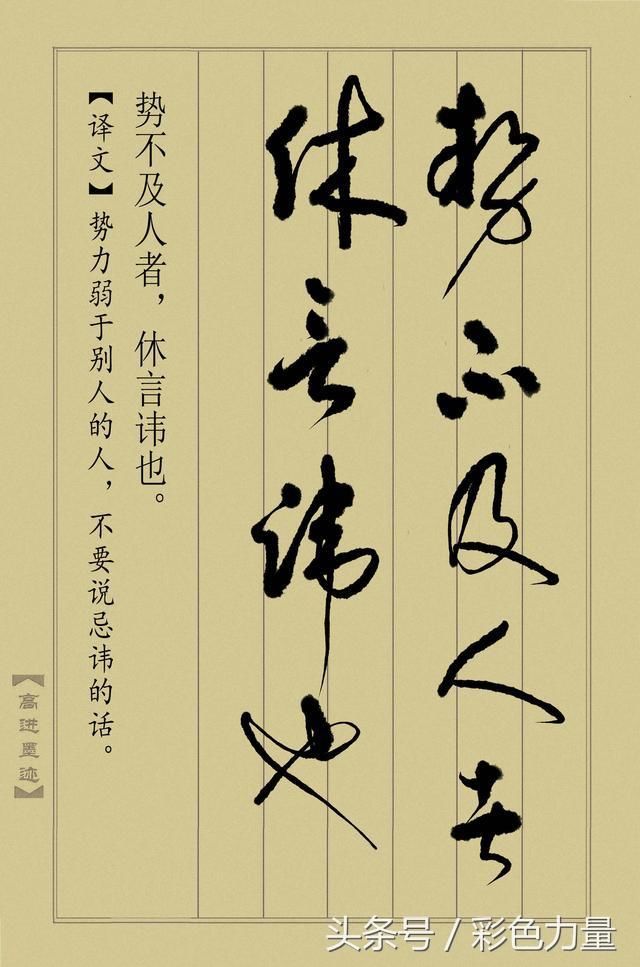 势不及人者
休言讳也
势不及人者，休言讳也。
【译文】势力弱于别人的人，不要说忌讳的话。
【高进墨迹】
头条号／彩色力量